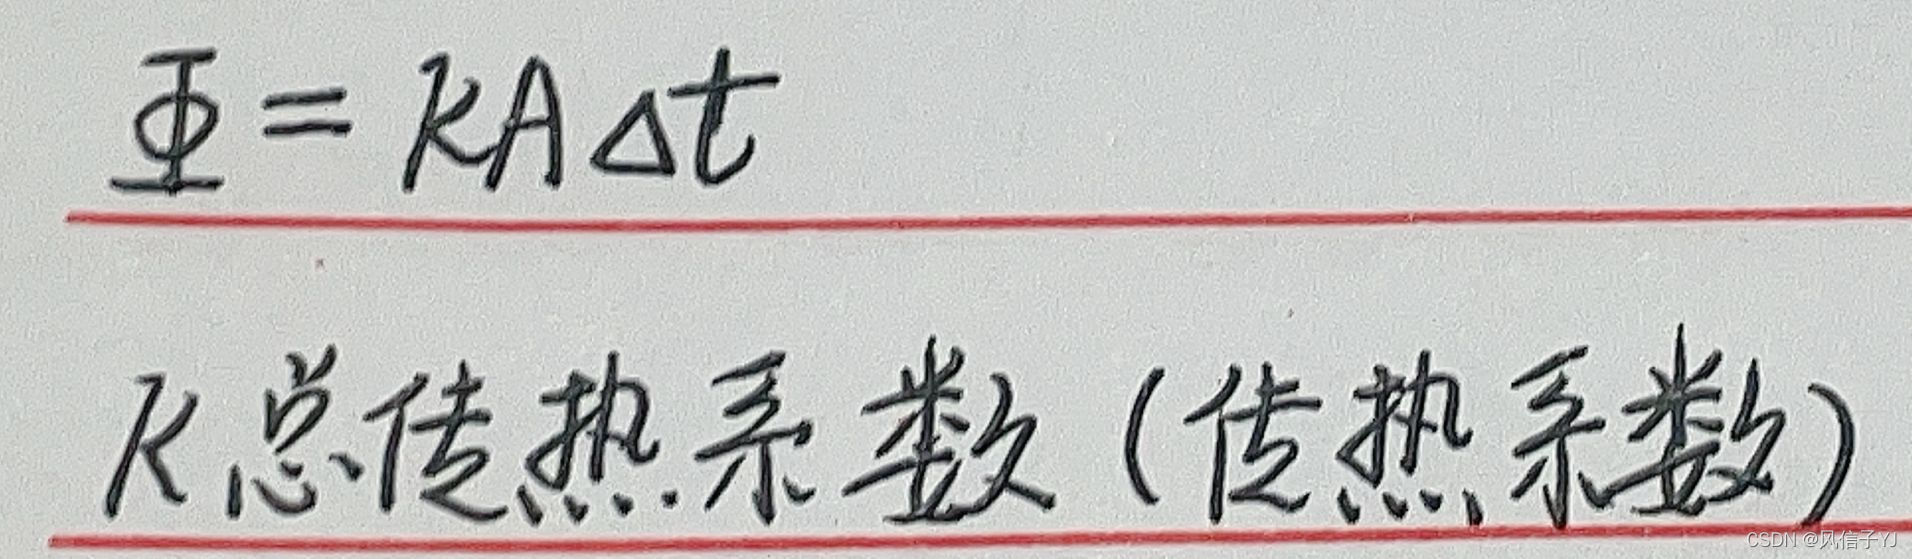 Φ = KAΔt
K总传热系数（传热系数）
CSDN @风信子YJ